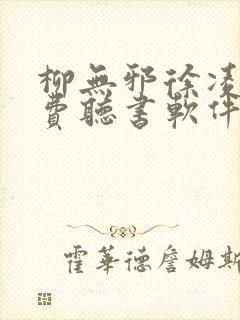 柳無邪徐凌
費聽書軟件
霍華德詹姆斯